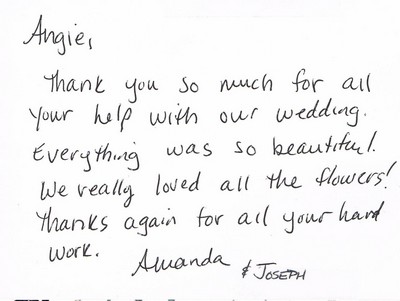 Angie,
Thank you so much for all
your help with our wedding.
Everything was so beautiful!
We really loved all the flowers!
Thanks again for all your hard
work.
Amanda & JOSEPH